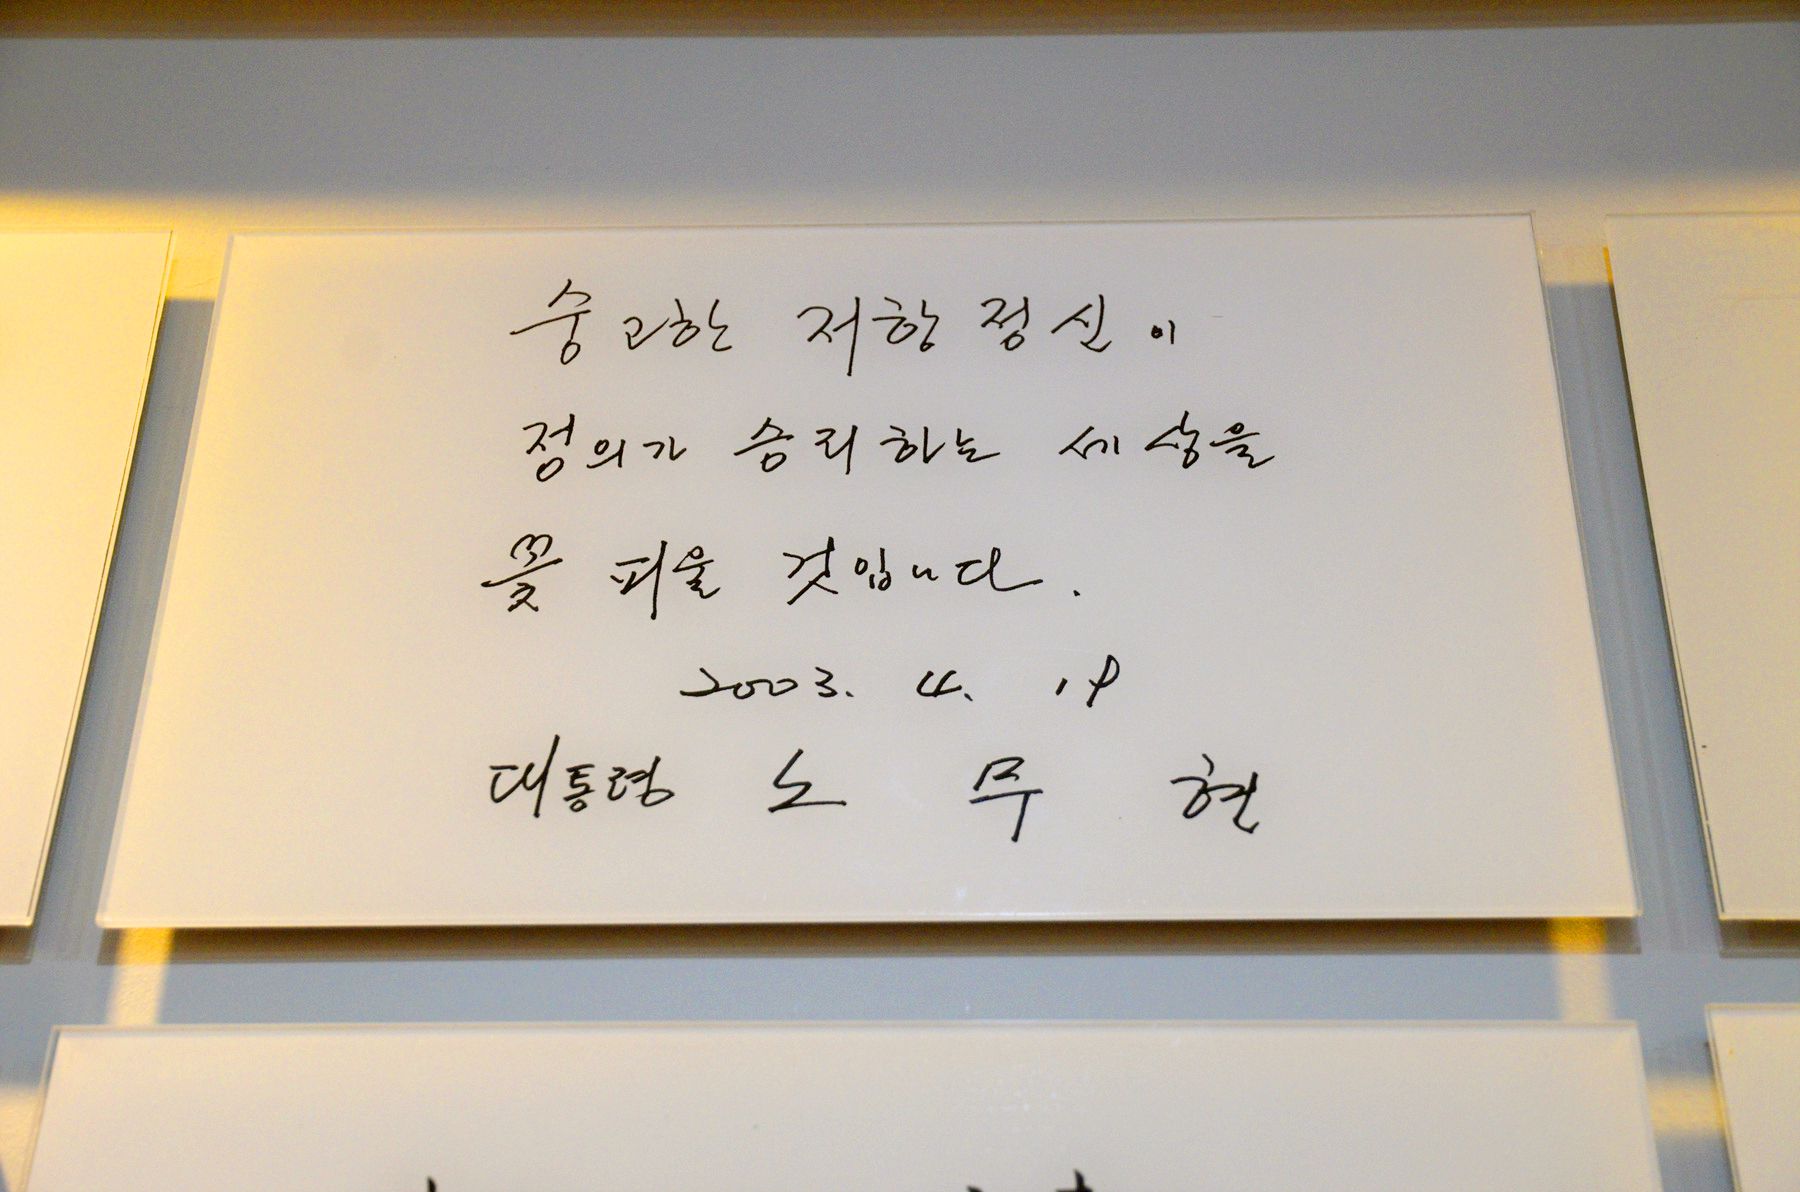 숭고한 저항정신이
정의가 승리하는 세상을
꽃 피울 것입니다.
2003. 4. 19
대통령 노 무 현